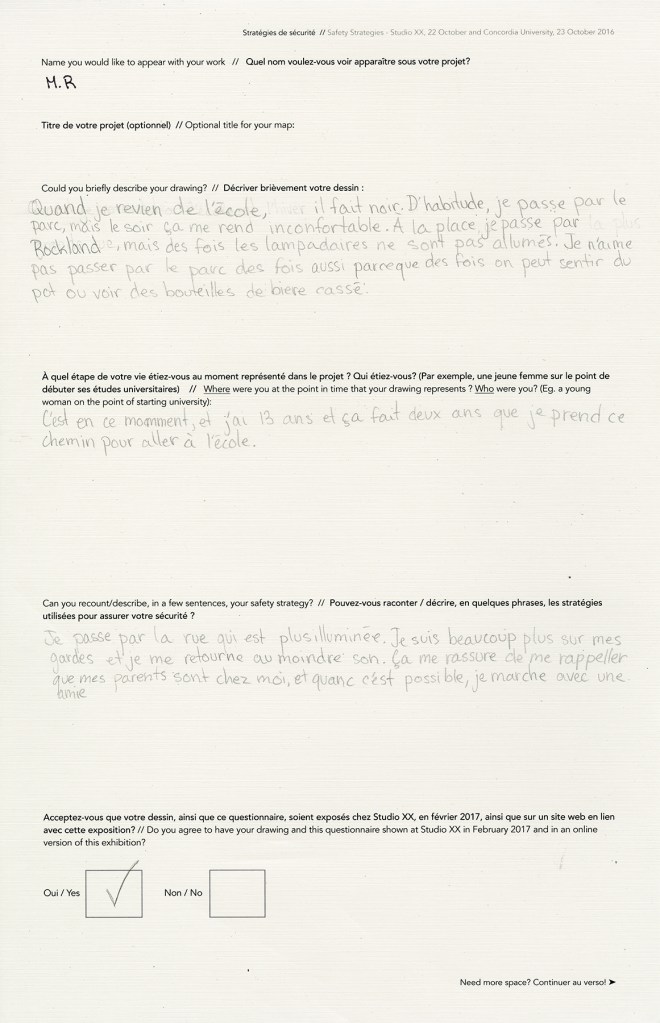 Stratégies de sécurité // Safety Strategies - Studio XX, 22 October and Concordia University, 23 October 2016
Name you would like to appear with your work // Quel nom voulez-vous voir apparaître sous votre projet?
M.R
Titre de votre projet (optionnel) // Optional title for your map:
Could you briefly describe your drawing? // Décriver brièvement votre dessin :
Quand je revien de l'école, il fait noir. D'habitude, je passe par le
parc, mais le soir ça me rend inconfortable. À la place, je passe par
Rockland, mais des fois les lampadaires ne sont pas allumés. Je n'aime
pas passer par le parc des fois aussi parceque des fois on peut sentir du
pot ou voir des bouteilles de biere cassé.
À quel étape de votre vie étiez-vous au moment représenté dans le projet ? Qui étiez-vous? (Par exemple, une jeune femme sur le point de
débuter ses études universitaires) // Where were you at the point in time that your drawing represents ? Who were you? (Eg. a young
woman on the point of starting university):
C'est en ce momment, et j'ai 13 ans et ça fait deux ans que je prend ce
chemin pour aller à l'école.
Can you recount/describe, in a few sentences, your safety strategy? // Pouvez-vous raconter / décrire, en quelques phrases, les stratégies
utilisées pour assurer votre sécurité ?
Je passe par la rue qui est plus illuminée. Je suis beaucoup plus sur mes
gardes et je me retourne au moindre son. Ça me rassure de me rappeller
que mes parents sont chez moi, et quanc c'est possible, je marche avec une
amie
Acceptez-vous que votre dessin, ainsi que ce questionnaire, soient exposés chez Studio XX, en février 2017, ainsi que sur un site web en lien
avec cette exposition? // Do you agree to have your drawing and this questionnaire shown at Studio XX in February 2017 and in an online
version of this exhibition?
Oui / Yes Non / No
Need more space? Continuer au verso! ➤